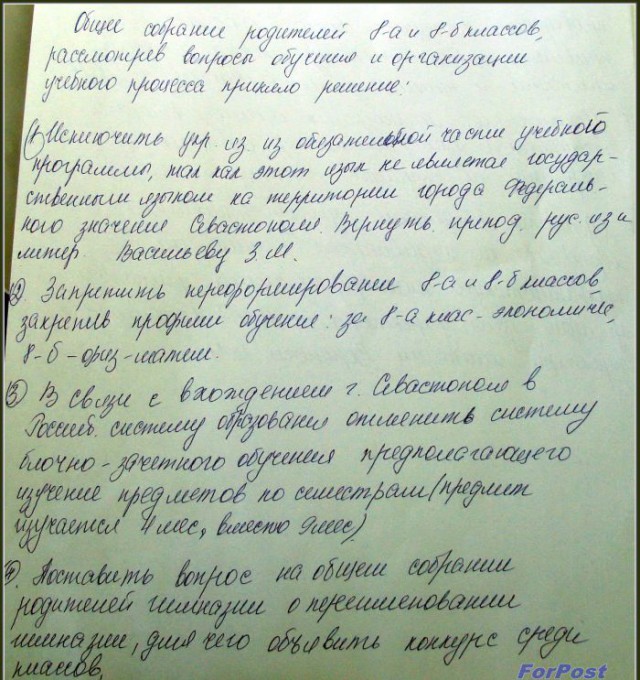 Общее собрание родителей 8-а и 8-б классов,
рассмотрев вопросы обучения и организации
учебного процесса приняло решение:
1) Исключить укр. яз. из обязательной части учебного
программы, так как этот язык не является государ-
ственным языком на территории города Федераль-
ного значения Севастополя. Вернуть препод. рус. яз и
литер. Васильеву З.М.
2) Запретить переформирование 8-а и 8-б классов,
закрепив профили обучения: за 8-а клас - экономиче,
8-б - физ-матем.
3) В связи с вхождением г. Севастополя в
Россий. систему образования отменить систему
блочно-зачетного обучения предполагающего
изучение предметов по семестрам (предмет
изучается 4 мес, вместо 9 мес)
4. Поставить вопрос на общем собрании
родителей гимназии о переименовании
гимназии, для чего объявить конкурс среди
классов,
ForPost